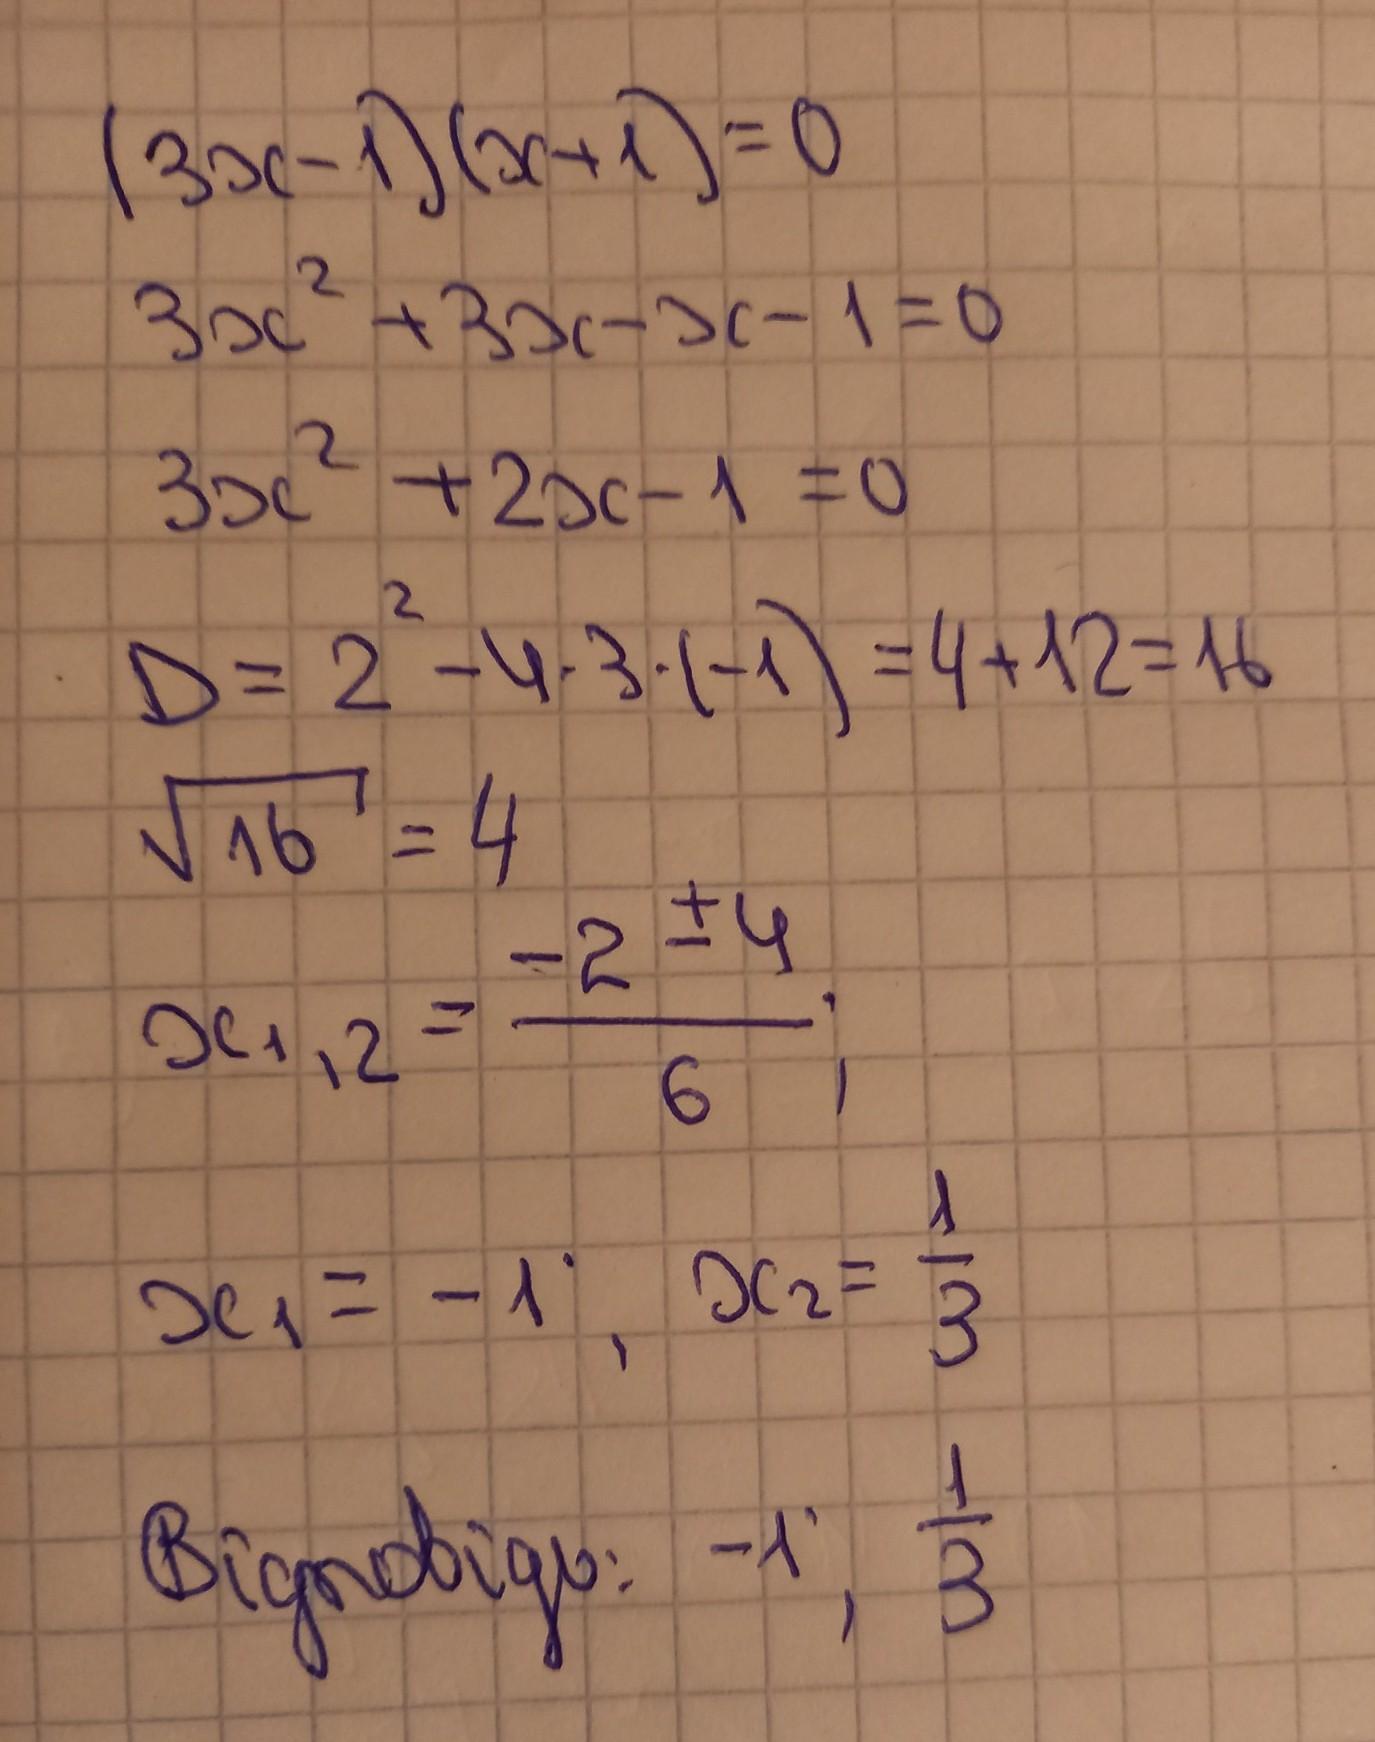 (3x-1)(x+1)=0
3x² + 3x - x - 1 = 0
3x² + 2x - 1 = 0
D = 2² - 4·3·(-1) = 4+12 = 16
√16 = 4
x₁,₂ = (-2 ± 4)/6 ;
x₁ = -1 ; x₂ = 1/3
Відповідь: -1 ; 1/3